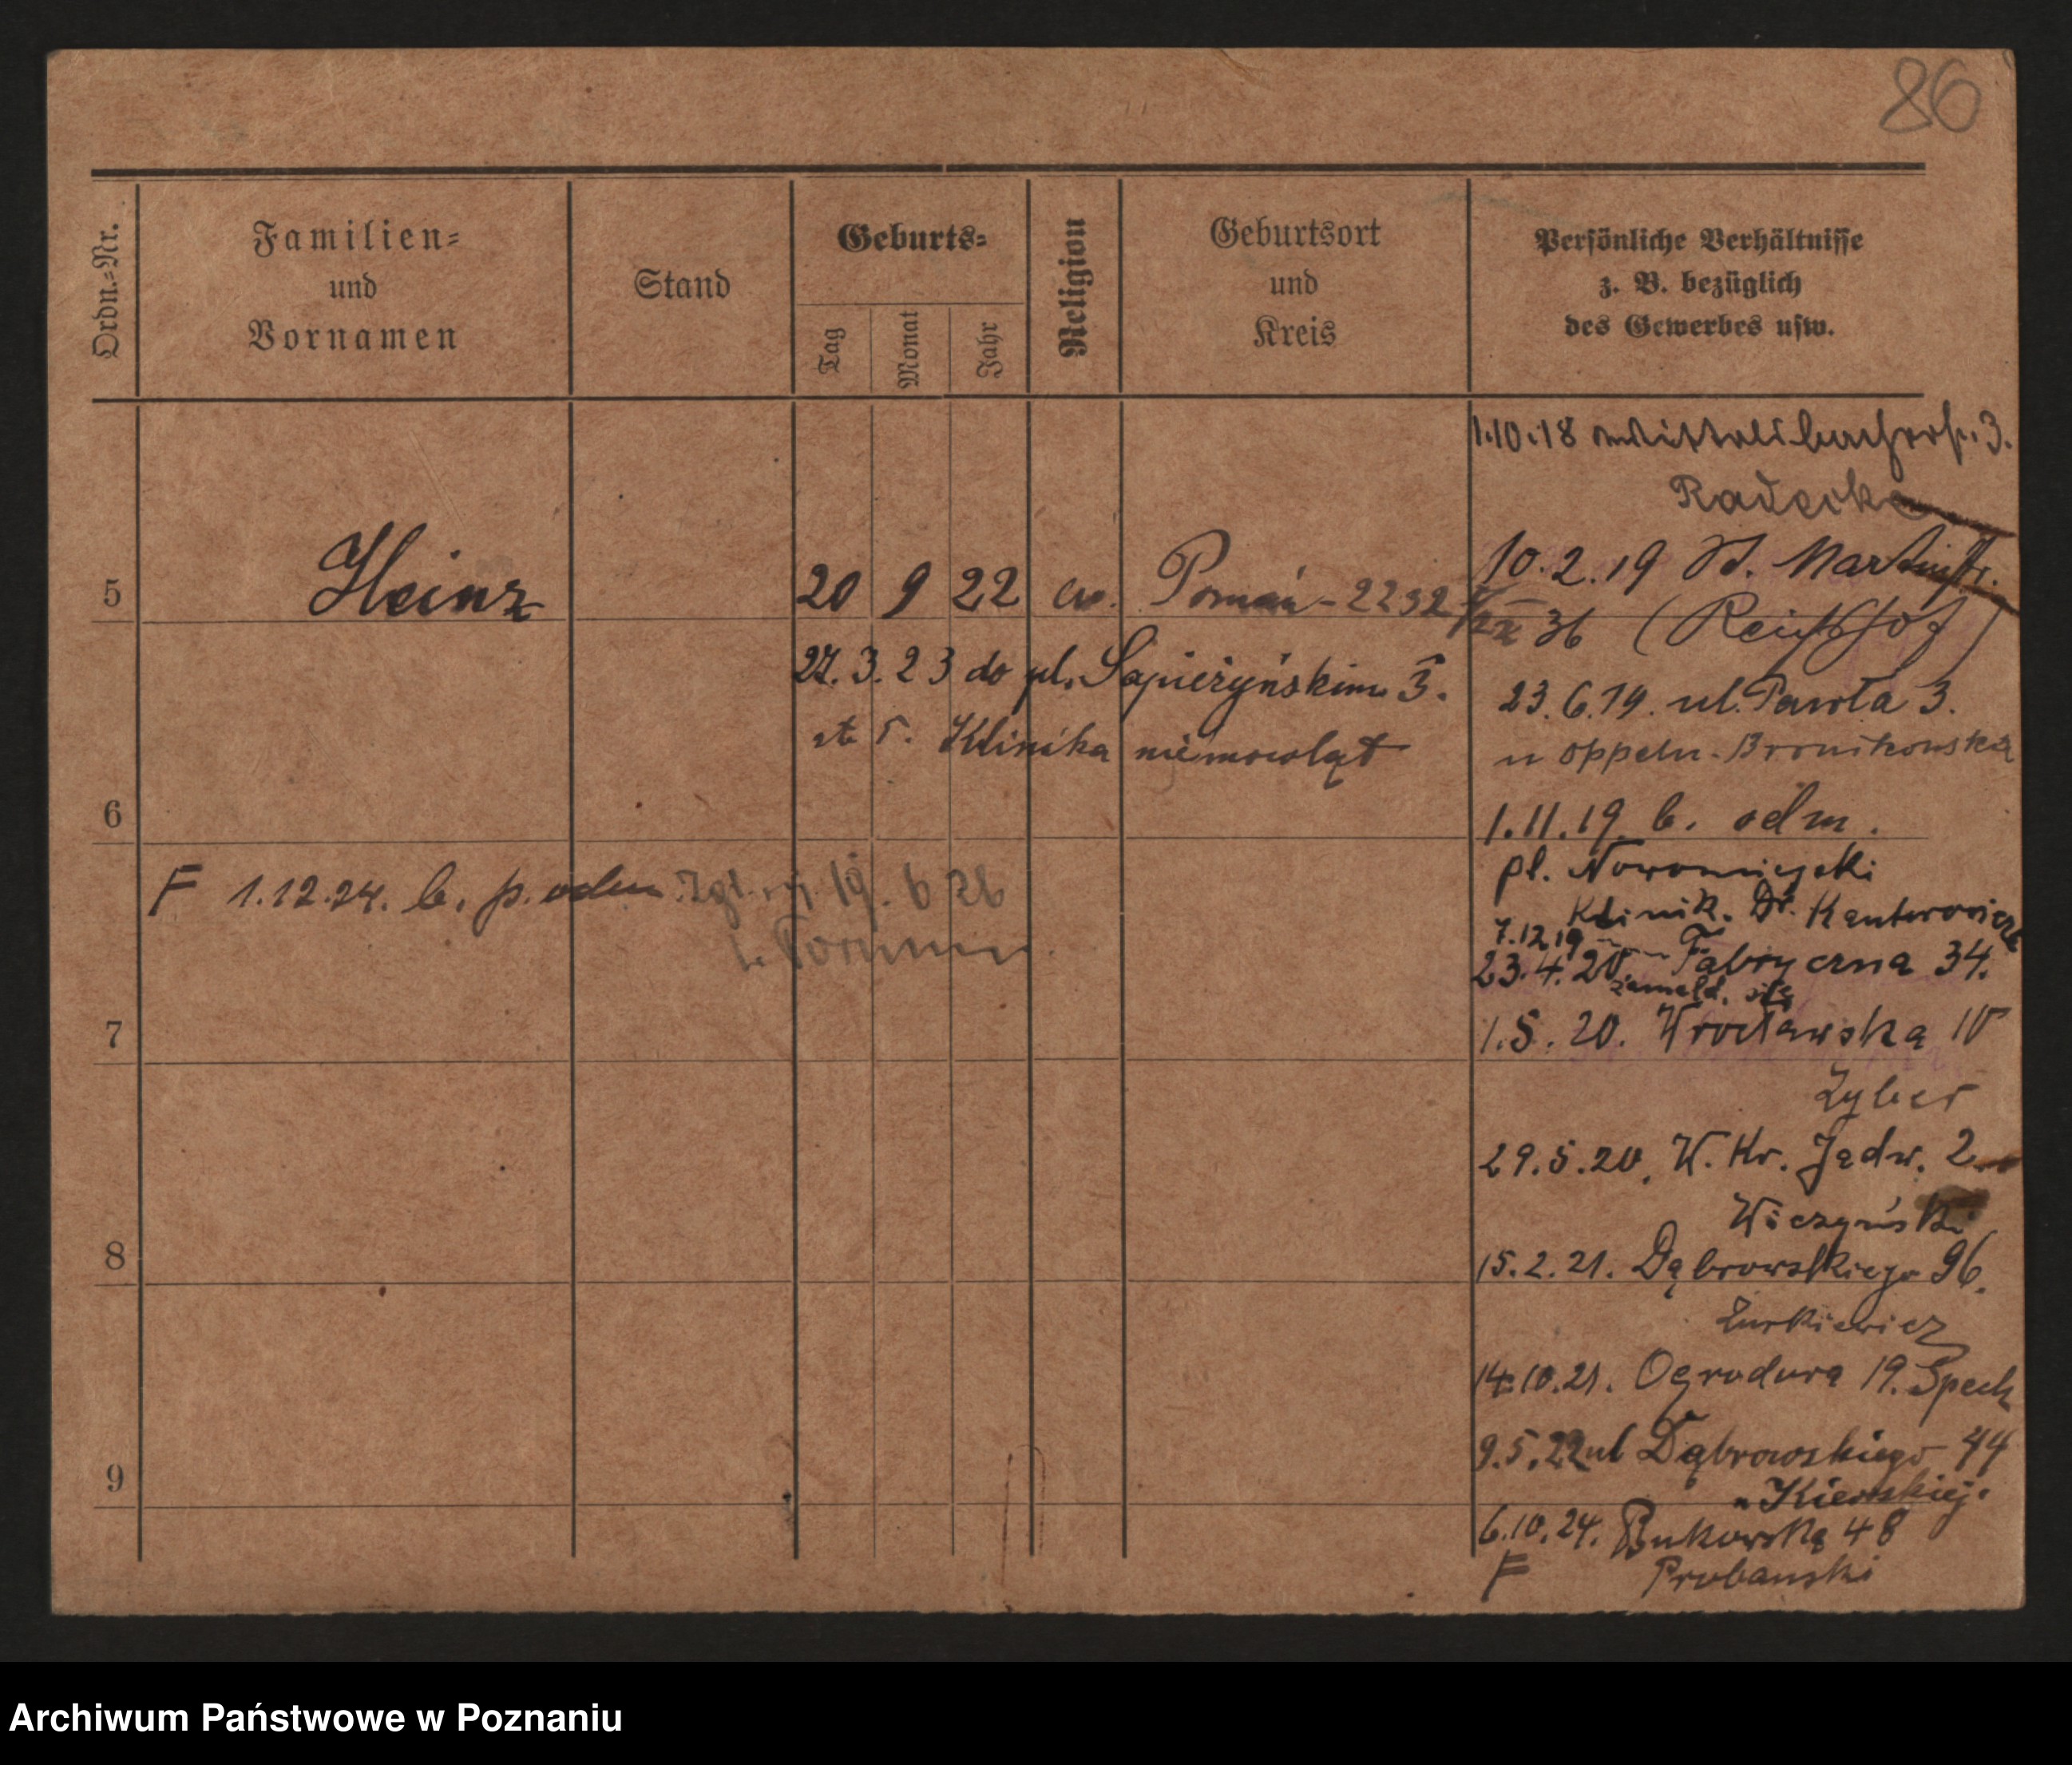 86
Ordn.=Nr.
Familien=
und
Vornamen
Stand
Geburts=
Tag
Monat
Jahr
Religion
Geburtsort
und
Kreis
Persönliche Verhältnisse
z. B. bezüglich
des Gewerbes usw.
1.10.18 3.
Radecke
5 Heinz 20 9 22 ev. Poznań - 2232
10.2.19 St. Martinstr.
36 (Reichshof)
27.3.23 do pl. Sapieżyńskim 3.
Klinika niemowląt
23.6.19. ul. Pawła 3.
u Oppeln-Bronikowska
6
1.11.19 b. odm.
pl. Nowomiejski
Klinik. Dr. Kantorowicz
F 1.12.24. b. p. odm. Zgł. 19. 6 26
7.12.19
23.4.20. Fabryczna 34.
zameld. się
7
1.5.20. Wrocławska 10
Zyber
29.5.20. W. Kr. Jadw. 2
Wiczyński
8
15.2.21. Dąbrowskiego 96.
Żurkiewicz
14.10.21. Ogrodowa 19. Spech
9
9.5.22 ul Dąbrowskiego 44
u Kierskiej.
6.10.24. Bukowska 48
F Probanski
Archiwum Państwowe w Poznaniu